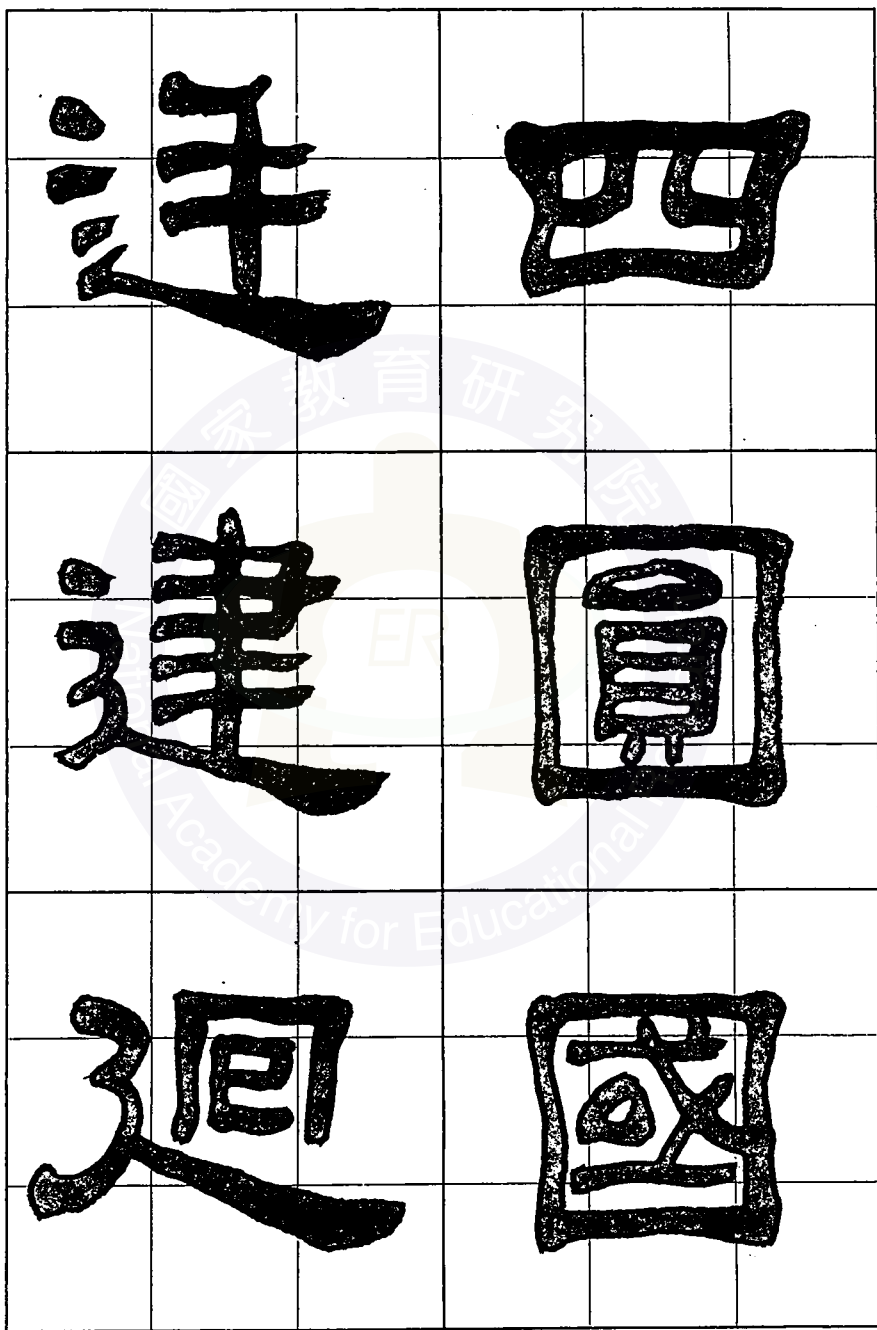 四圓國
建廻
國家教育研究院
National Academy for Educational